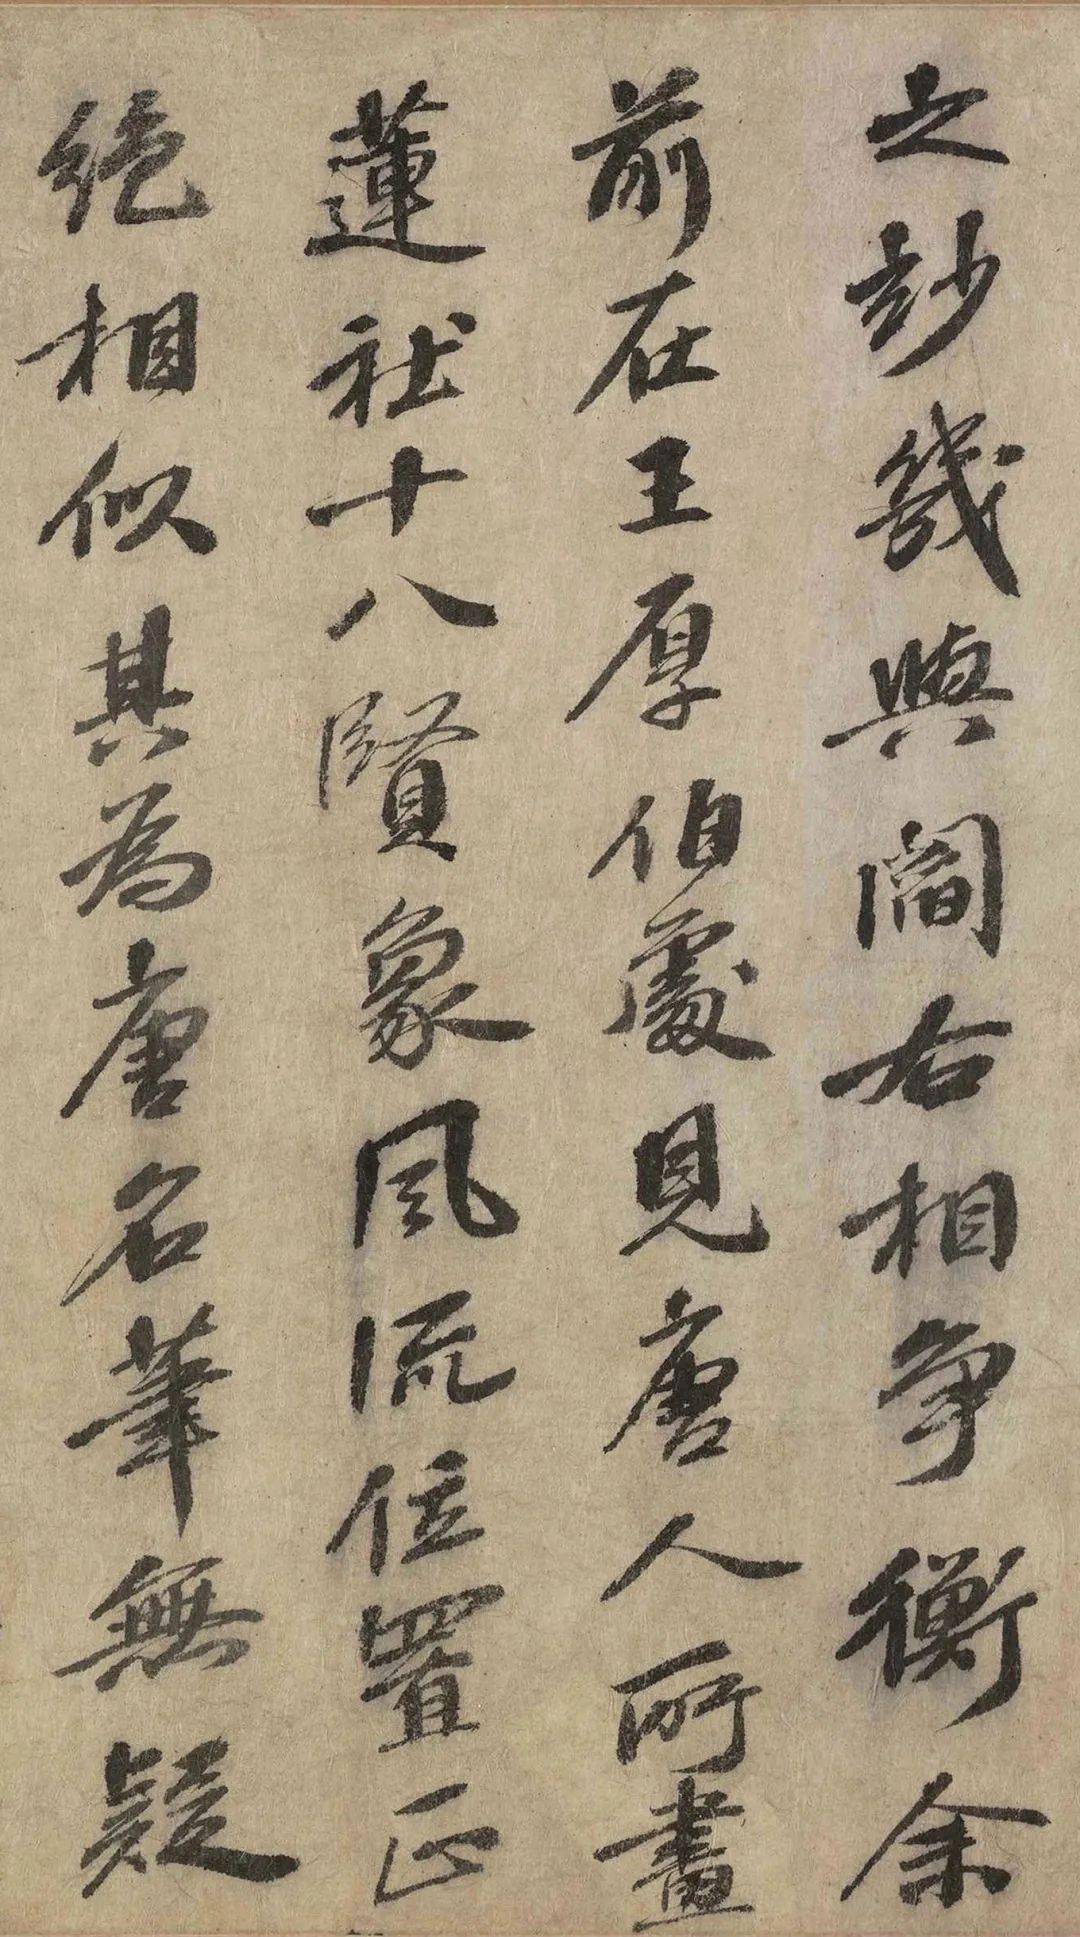 之玅幾與閻右相争衡余
前在王厚伯處見唐人所畫
蓮社十八賢象風流位置正
絶相似其為唐名筆無疑